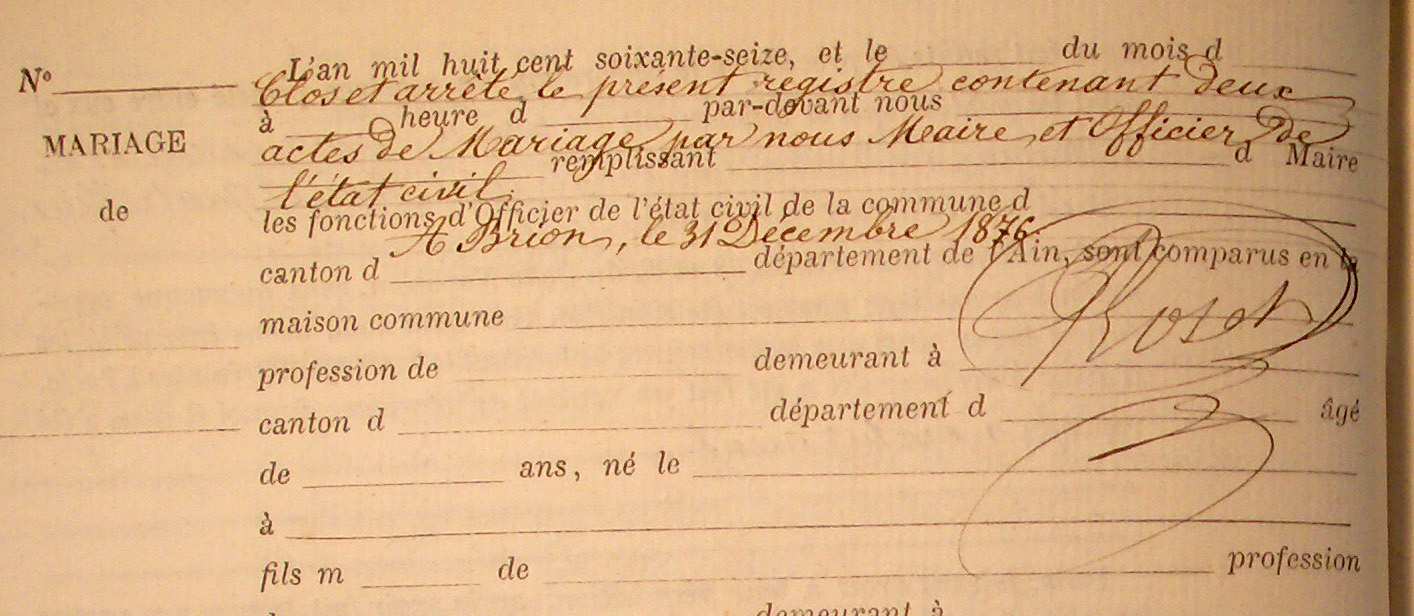 L'an mil huit cent soixante-seize, et le du mois d
N°
Clos et arrêté, le présent registre contenant deux
à heure d par-devant nous
MARIAGE
actes de Mariage par nous Maire et Officier de
remplissant d Maire
l'état civil.
de
les fonctions d'Officier de l'état civil de la commune d
A Brion, le 31 Décembre 1876.
canton d département de l'Ain, sont comparus en la
maison commune
Roset
profession de demeurant à
canton d département d âgé
de ans, né le
à
fils m de profession
demeurant à